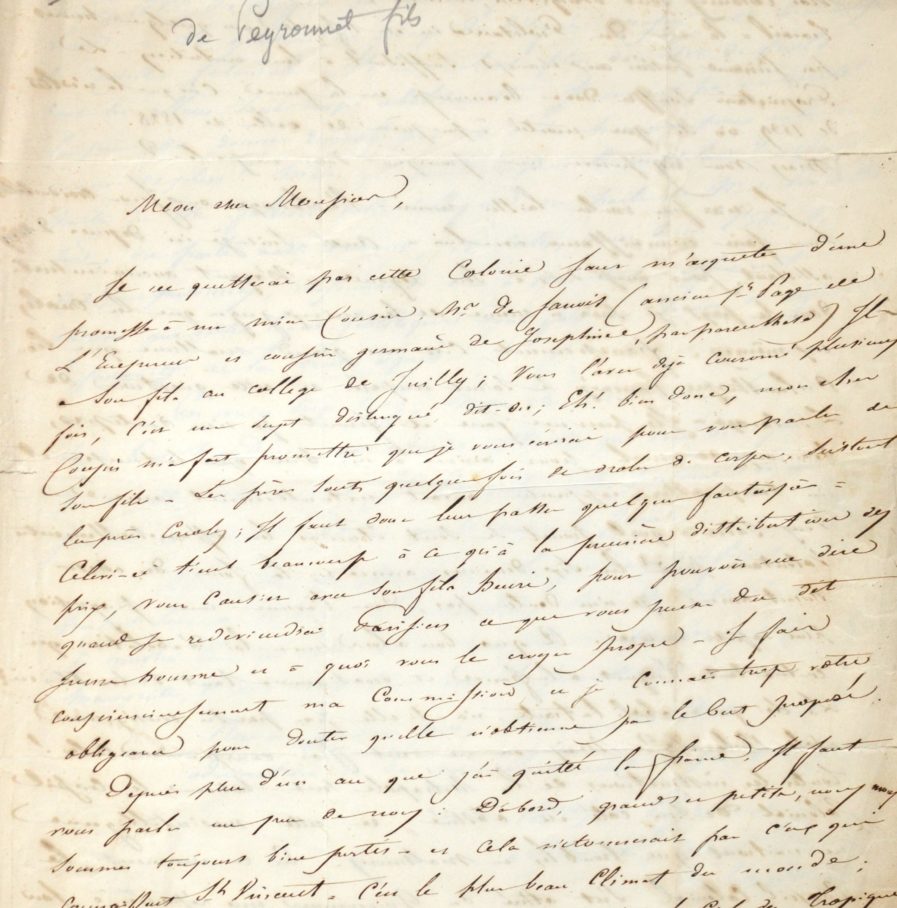 de Peyronnet fils
Mon cher Monsieur,
Je ne quitterai pas cette Colonie sans m'acquitté d'une
promesse à un mien Cousin, Mr de (ancien 1er Page de
L'Empereur et cousin germain de Joséphine, par parenthèse) Il a
son fils au collège de Juilly; vous l'avez déjà couronné plusieurs
fois, c'est un sujet distingué dit-on; Eh! bien donc, mon cher
Cousin m'a fait promettre que je vous écrirai pour vous parler de
son fils - Les pères sont quelque fois de drôles de corps, surtout
les pères Créoles; Il faut donc leur passer quelques fantaisies =
Celui-ci tient beaucoup à ce qu'à la première distribution des
prix, vous causiez avec son fils pour pouvoir me dire
quand je redeviendrai Parisien ce que vous pensez du dit
jeune homme et à quoi vous le croyez propre - Je fais
consciencieusement ma Commission et je connais trop votre
obligeance pour douter qu'elle n'obtienne pas le but proposé.
Depuis plus d'un an que j'ai quitté la france, Il faut
vous parler un peu de nous: D'abord, grands et petits, nous nous
sommes toujours bien portés - et cela n'étonnerait pas ceux qui
connaissent St Vincent - C'est le plus beau Climat du monde;
Tropique